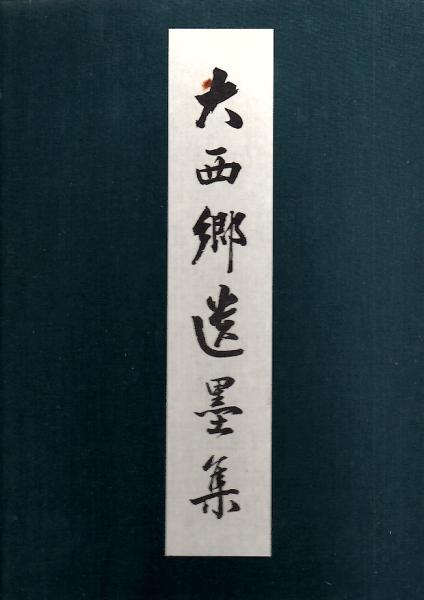 大西郷遺墨集